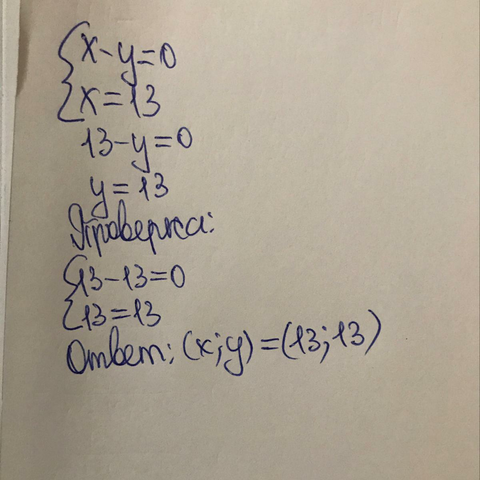 {x-y=0
{x=13
13-y=0
y=13
Проверка:
{13-13=0
{13=13
Ответ: (x;y)=(13;13)